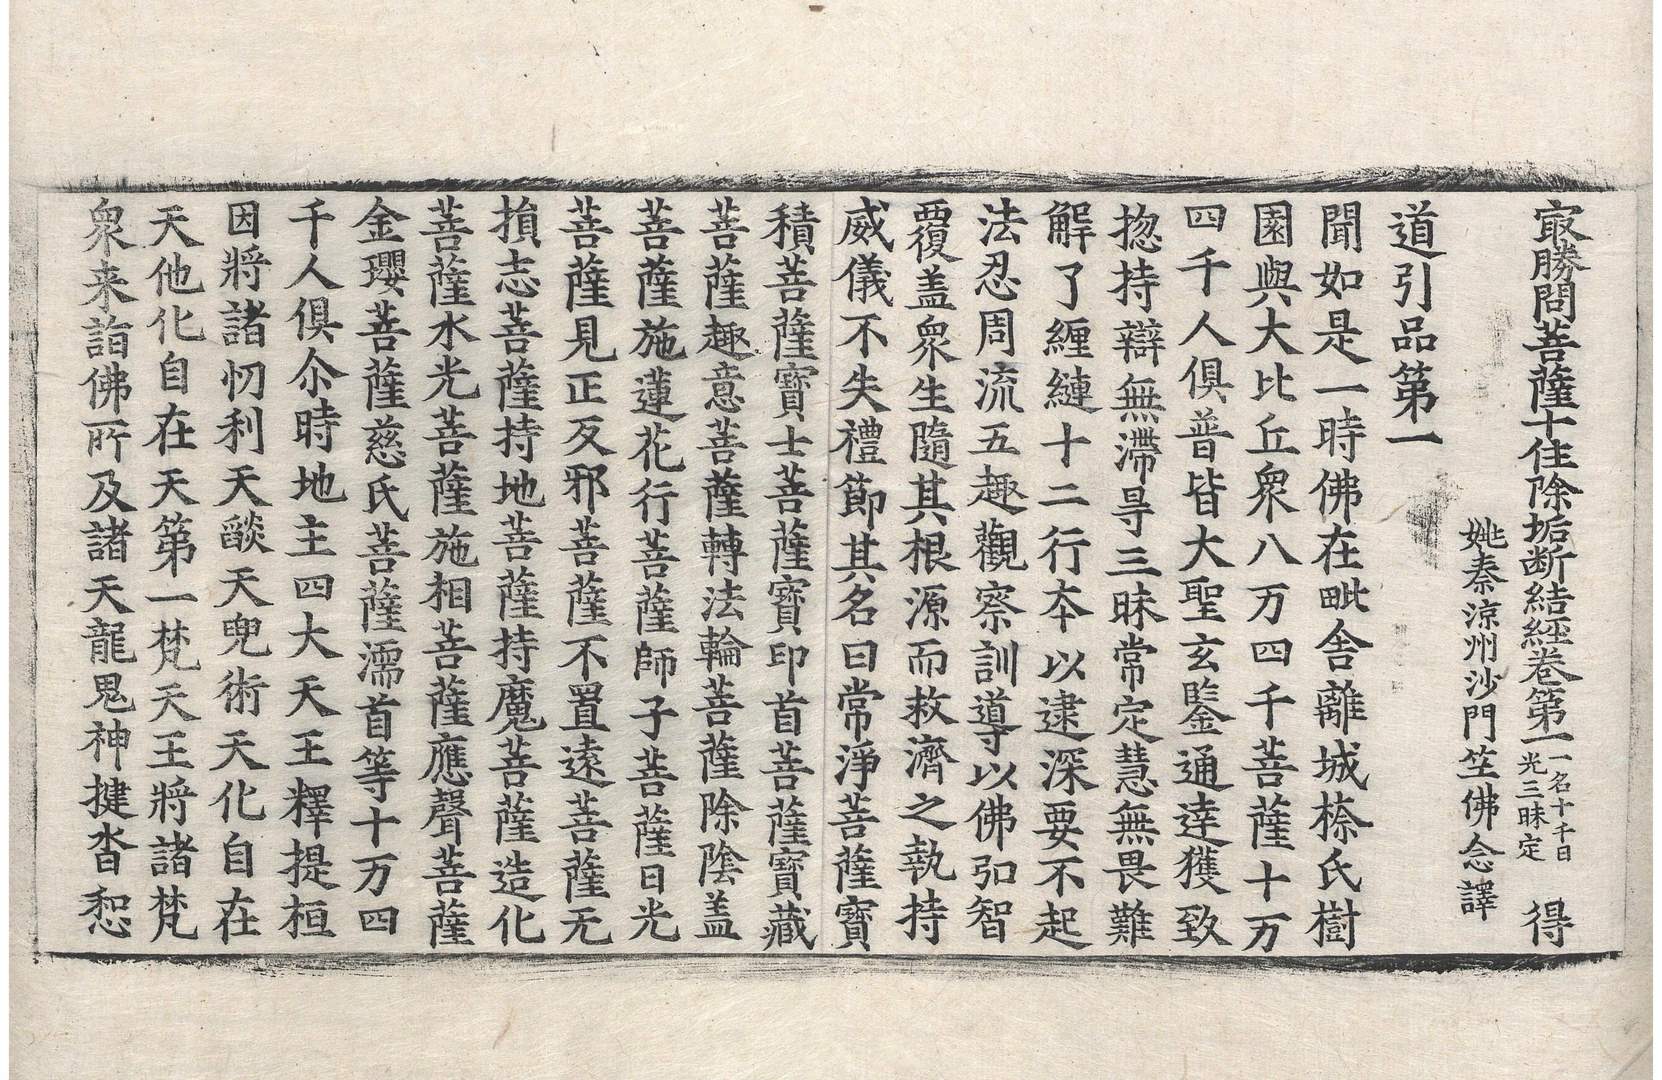 冣勝問菩薩十住除垢断結經卷第一 一名十千日光三昧定 得
姚秦涼州沙門竺佛念譯
道引品第一
聞如是一時佛在毗舍離城㮈氏樹
園與大比丘衆八万四千菩薩十万
四千人俱普皆大聖玄鑒通達獲致
揔持辯無滯㝵三昧常定慧無畏難
解了纏縺十二行夲以逮深要不起
法忍周流五趣觀察訓導以佛弘智
覆盖衆生隨其根源而救濟之執持
威儀不失禮節其名曰常淨菩薩寶
積菩薩寶士菩薩寶印首菩薩寶藏
菩薩趣意菩薩轉法輪菩薩除陰盖
菩薩施蓮花行菩薩師子菩薩日光
菩薩見正反邪菩薩不置遠菩薩无
損志菩薩持地菩薩持魔菩薩造化
菩薩水光菩薩施相菩薩應聲菩薩
金瓔菩薩慈氏菩薩濡首等十万四
千人俱尒時地主四大天王釋提桓
因將諸忉利天燄天兜術天化自在
天他化自在天第一梵天王將諸梵
衆来詣佛所及諸天龍鬼神揵沓惒